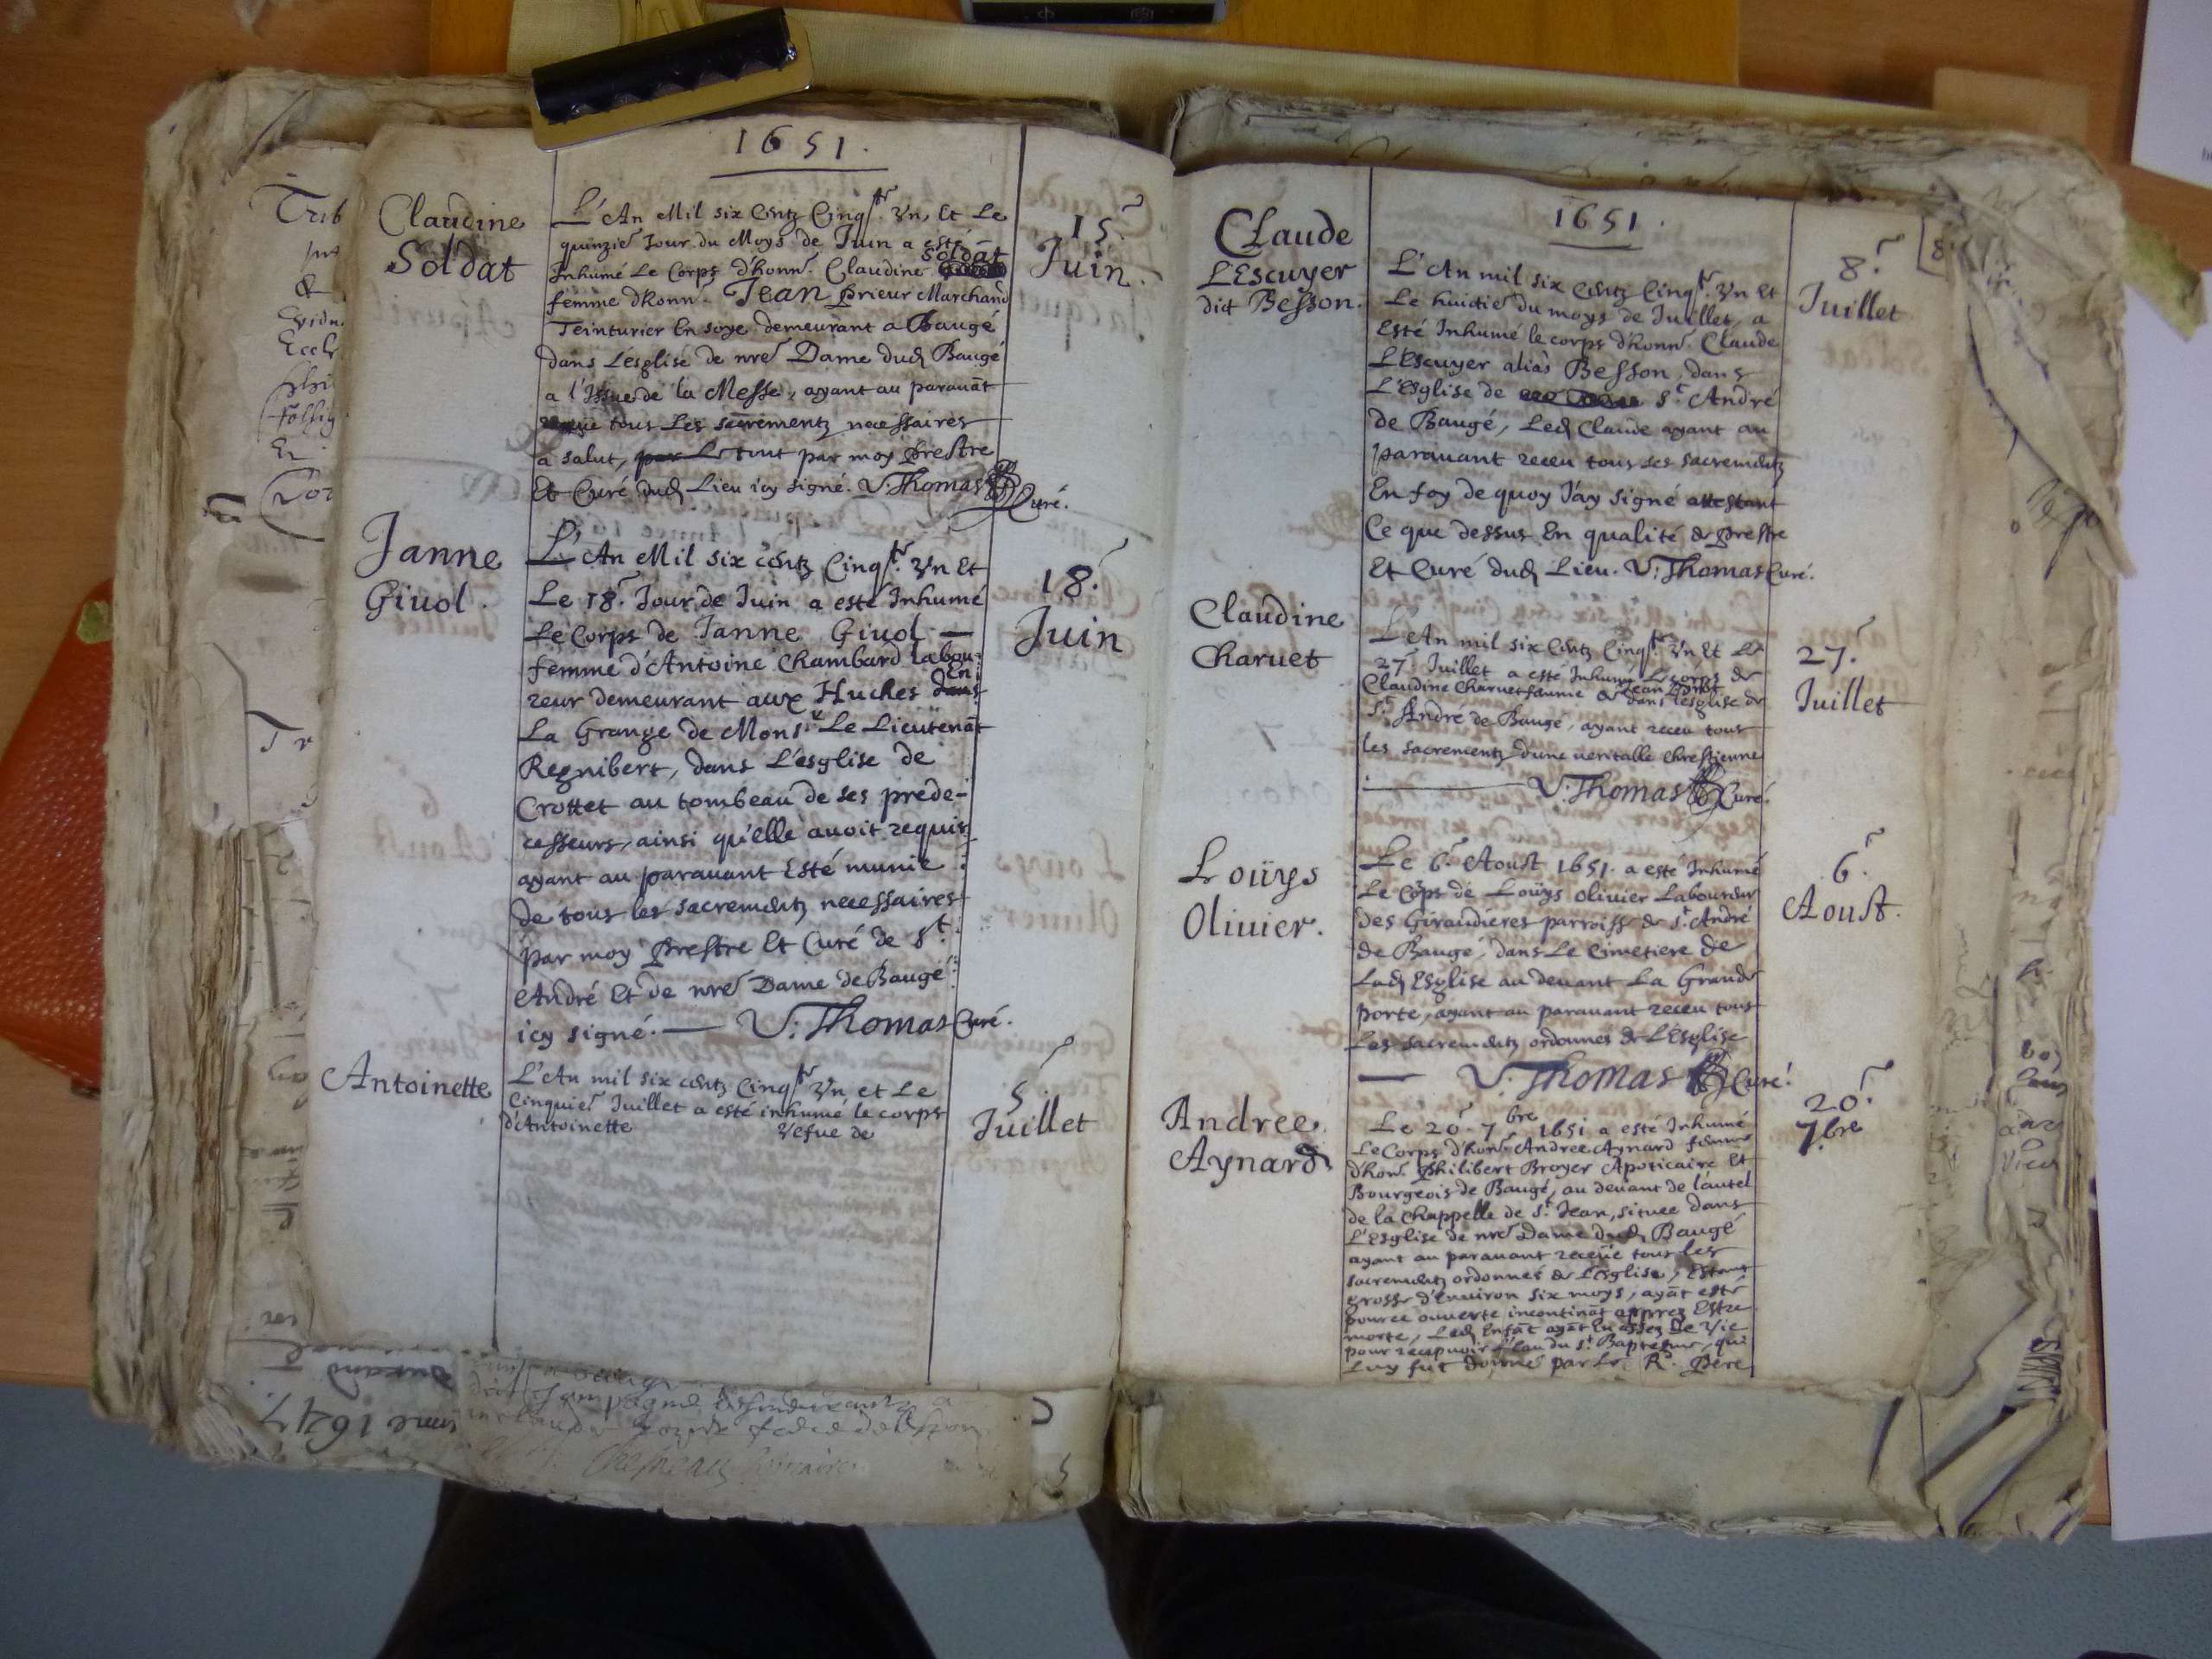 1651.
Claudine
Soldat
L'An Mil six Centz Cinqte. Vn, Et Le
quinzie Jour du Moys de Juin a esté
Soldat
Inhumé Le Corps d'honne. Claudine
femme d'honn. Jean Prieur Marchand
Teinturier En soye demeurant a Baugé
dans L'esglise de nre Dame dud Baugé
a l'Issue de la Messe, ayant au parauāt
tous Les sacrementz necessaires
a salut, par Le tout par moy Prestre
Et Curé dud Lieu icy signé. V. Thomas Curé.
15.
Juin.
Janne
Giuol.
L'An Mil six centz Cinqte. Vn Et
Le 18e. Jour de Juin a esté Inhumé
Le Corps de Janne Giuol —
femme d'Antoine Chambard labou-
reur demeurant aux Huches dans
En
La Grange de Monsr. Le Lieutenāt
Regnibert, dans L'esglise de
Crottet au tombeau de ses prede-
cesseurs, ainsi qu'elle auoit requis
ayant au parauant Esté munie
de tous les sacrementz necessaires
par moy Prestre Et Curé de St.
André Et de nre Dame de Baugé
icy signé. — V. Thomas Curé.
18.
Juin
Antoinette
L'An mil six centz Cinqte Vn et Le
Cinquie Juillet a esté inhumé le corps
d'Antoinette Vefue de
5.
Juillet
1651.
Claude
L'Escuyer
dict Besson.
L'An mil six Centz Cinqte. Vn Et
Le huictie du moys de Juillet, a
Esté Inhumé le corps d'honne. Claude
L'Escuyer alias Besson, dans
L'Esglise de St. André
de Baugé, Led Claude ayant au
parauant receu tous les sacrementz
En foy de quoy J'ay signé attestant
Ce que dessus En qualité de Prestre
Et Curé dud Lieu. V. Thomas Curé.
8.
Juillet
Claudine
Charuet
L'An mil six Centz Cinqte. Vn Et Le
27e Juillet a esté Inhumé Le corps de
Claudine Charuet femme de Jean dans l'esglise de
St. André de Baugé, ayant receu tous
les sacrementz d'une veritable Chrestienne
V. Thomas Curé.
27.
Juillet
Loüys
Oliuier.
Le 6e. Aoust 1651. a esté Inhumé
Le Corps de Loüys Oliuier Laboureur
des Giraudieres parroisse de St. André
de Baugé, dans Le Cimetiere de
Lad Esglise au deuant La Grande
porte, ayant au parauant receu tous
Les sacrementz ordonnes de L'Esglise
— V. Thomas Curé.
6.
Aoust.
Andree
Aynard
Le 20e. 7bre 1651 a esté Inhumé
Le Corps d'hone. Andree Aynard femme
d'hone. Philibert Broyer Apoticaire Et
Bourgeois de Baugé, au deuant de l'autel
de la Chappelle de St. Jean, situee dans
L'Esglise de nre Dame dud Baugé
ayant au parauant receue tous les
sacrementz ordonnes de L'esglise, Estant
grosse d'enuiron six moys, ayāt esté
ouuerte incontināt apprez Estre
morte, Led Enfāt ayāt Eu assez De Vie
pour recepuoir l'eau du St. Baptesme, qui
Luy fut donné par Le R. Père
20.
7bre